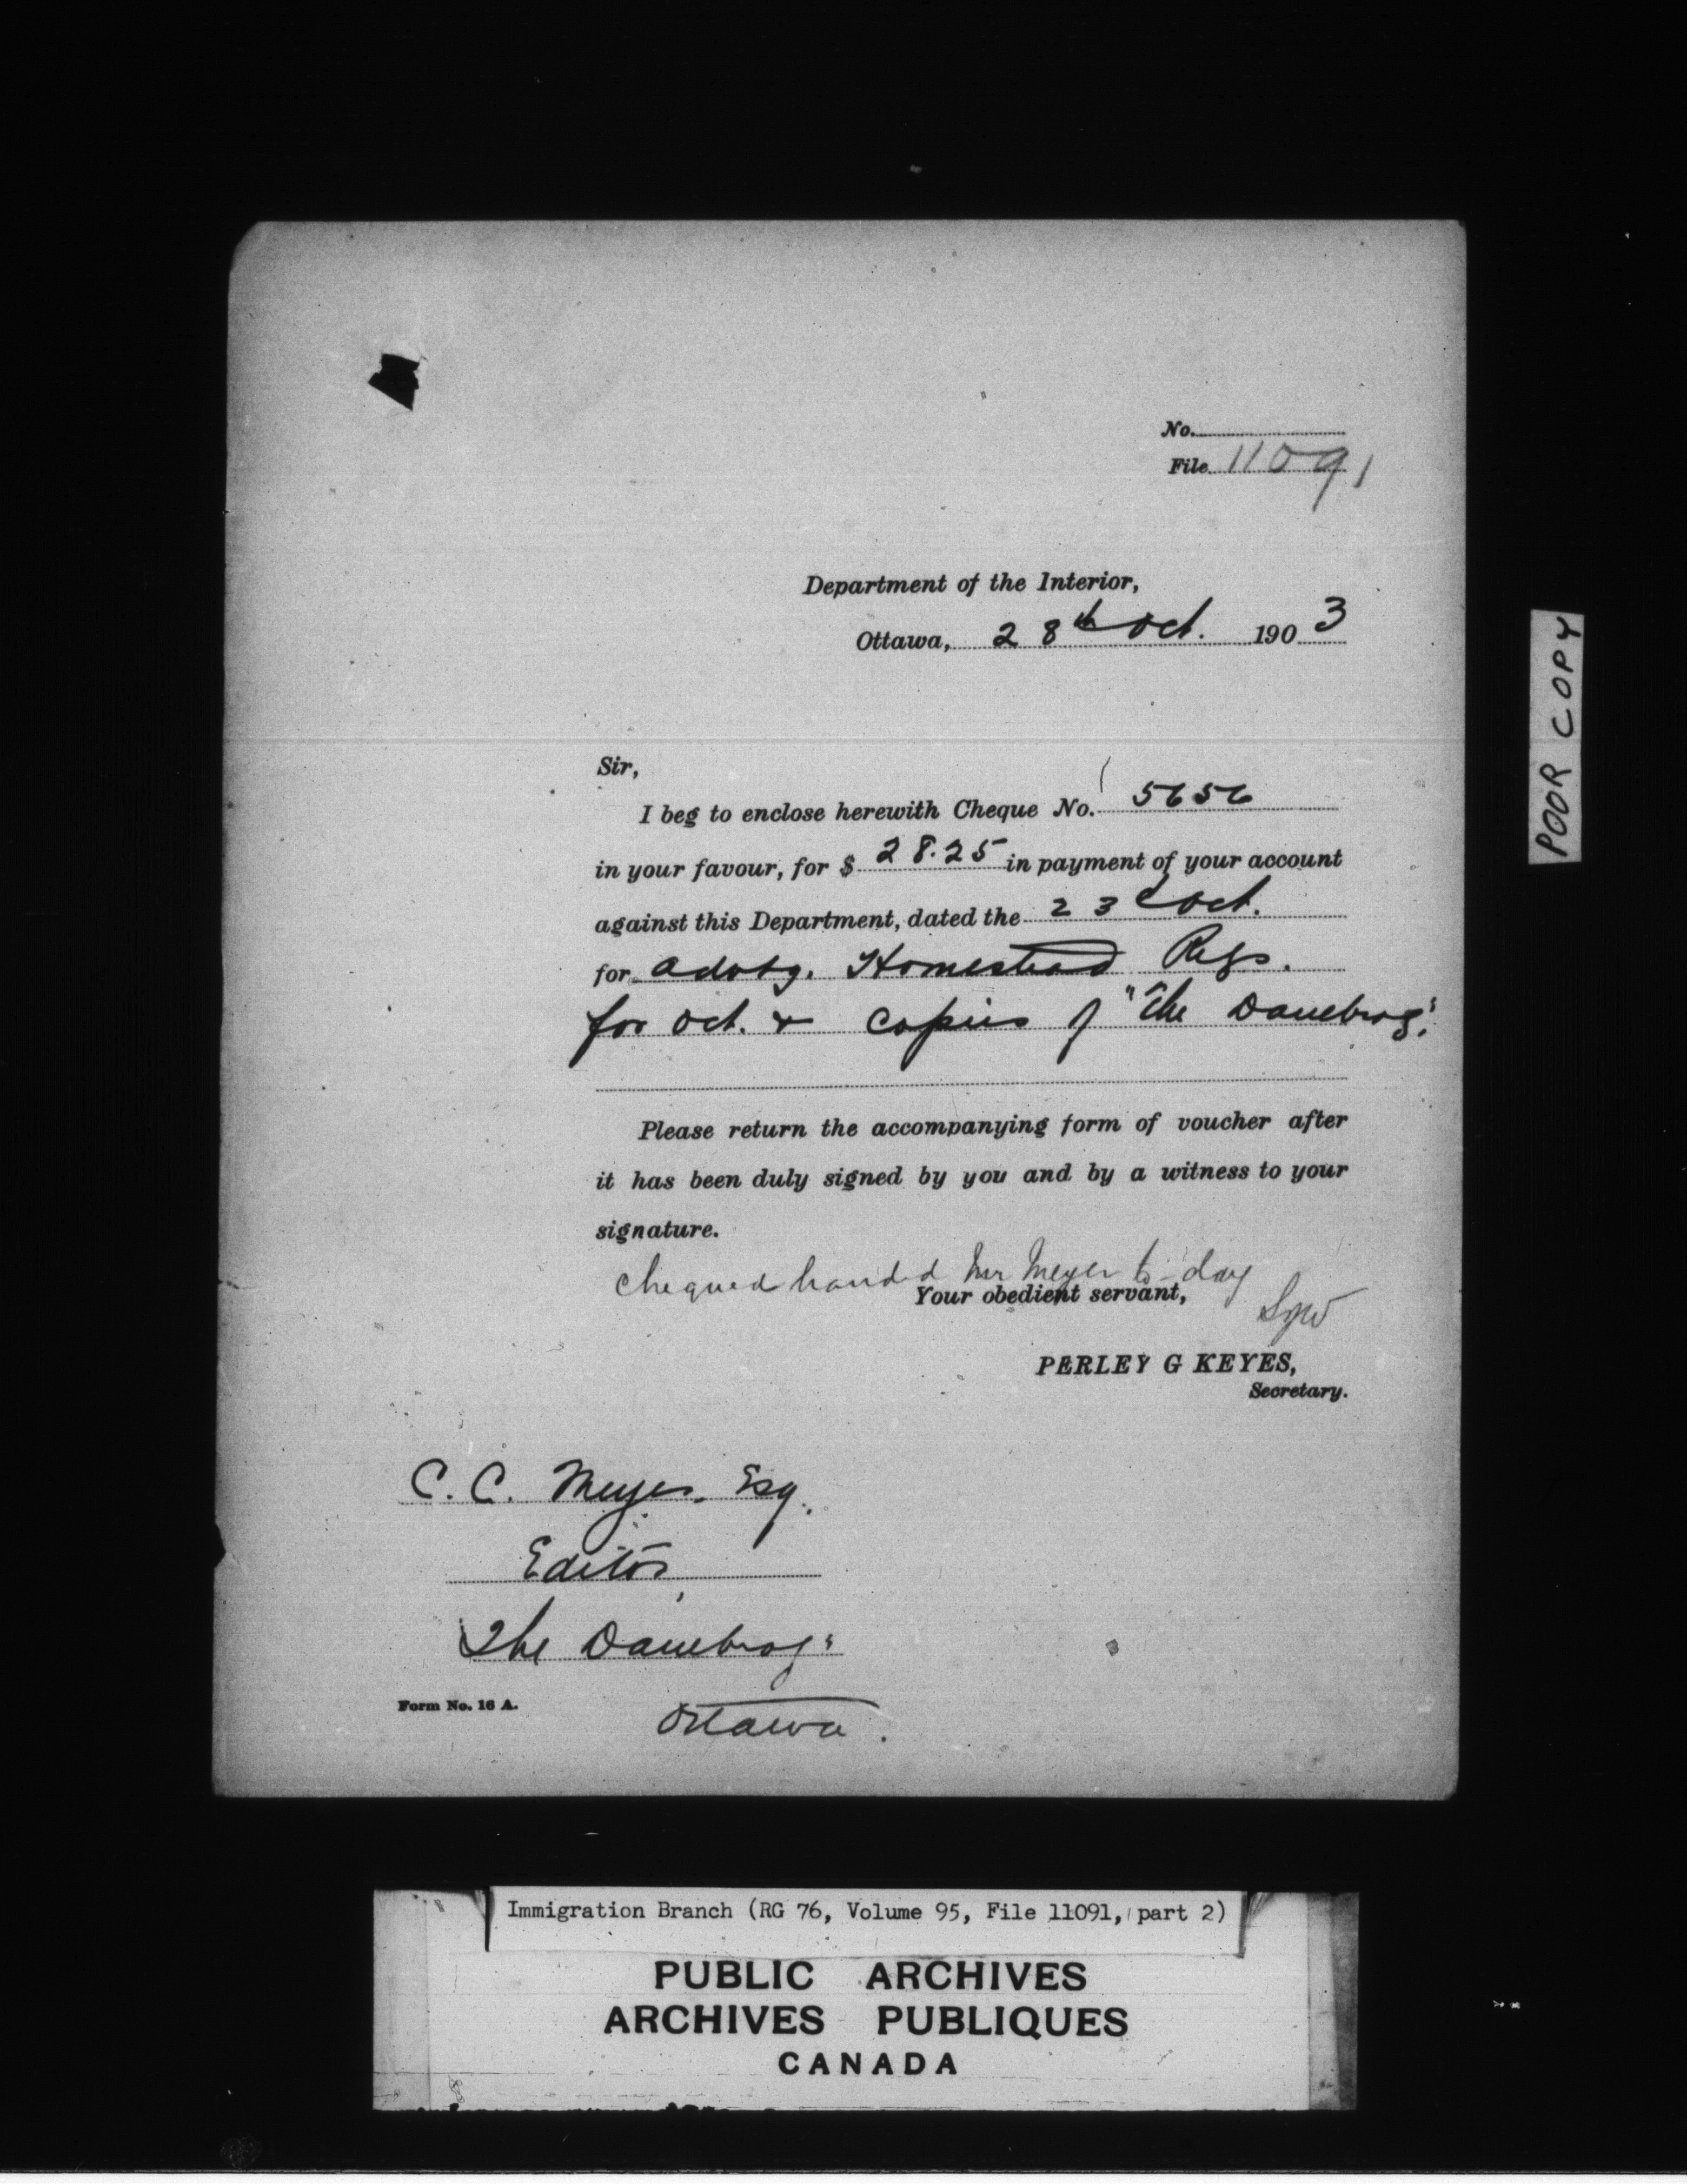 No.
File 11091
Department of the Interior,
Ottawa, 28th Oct. 1903
POOR COPY
Sir,
I beg to enclose herewith Cheque No. 5656
in your favour, for $ 28.25 in payment of your account
against this Department, dated the 23d Oct.
for advtg. Homestead Regs.
for Oct. & copies of "The Danebrog".
Please return the accompanying form of voucher after
it has been duly signed by you and by a witness to your
signature.
Chequed handed Mr Meyer to-day
Your obedient servant,
PERLEY G KEYES,
Secretary.
C. C. Meyer, Esq.
Editor,
"The Danebrog"
Form No. 16 A.
Ottawa.
Immigration Branch (RG 76, Volume 95, File 11091, part 2)
PUBLIC ARCHIVES
ARCHIVES PUBLIQUES
CANADA